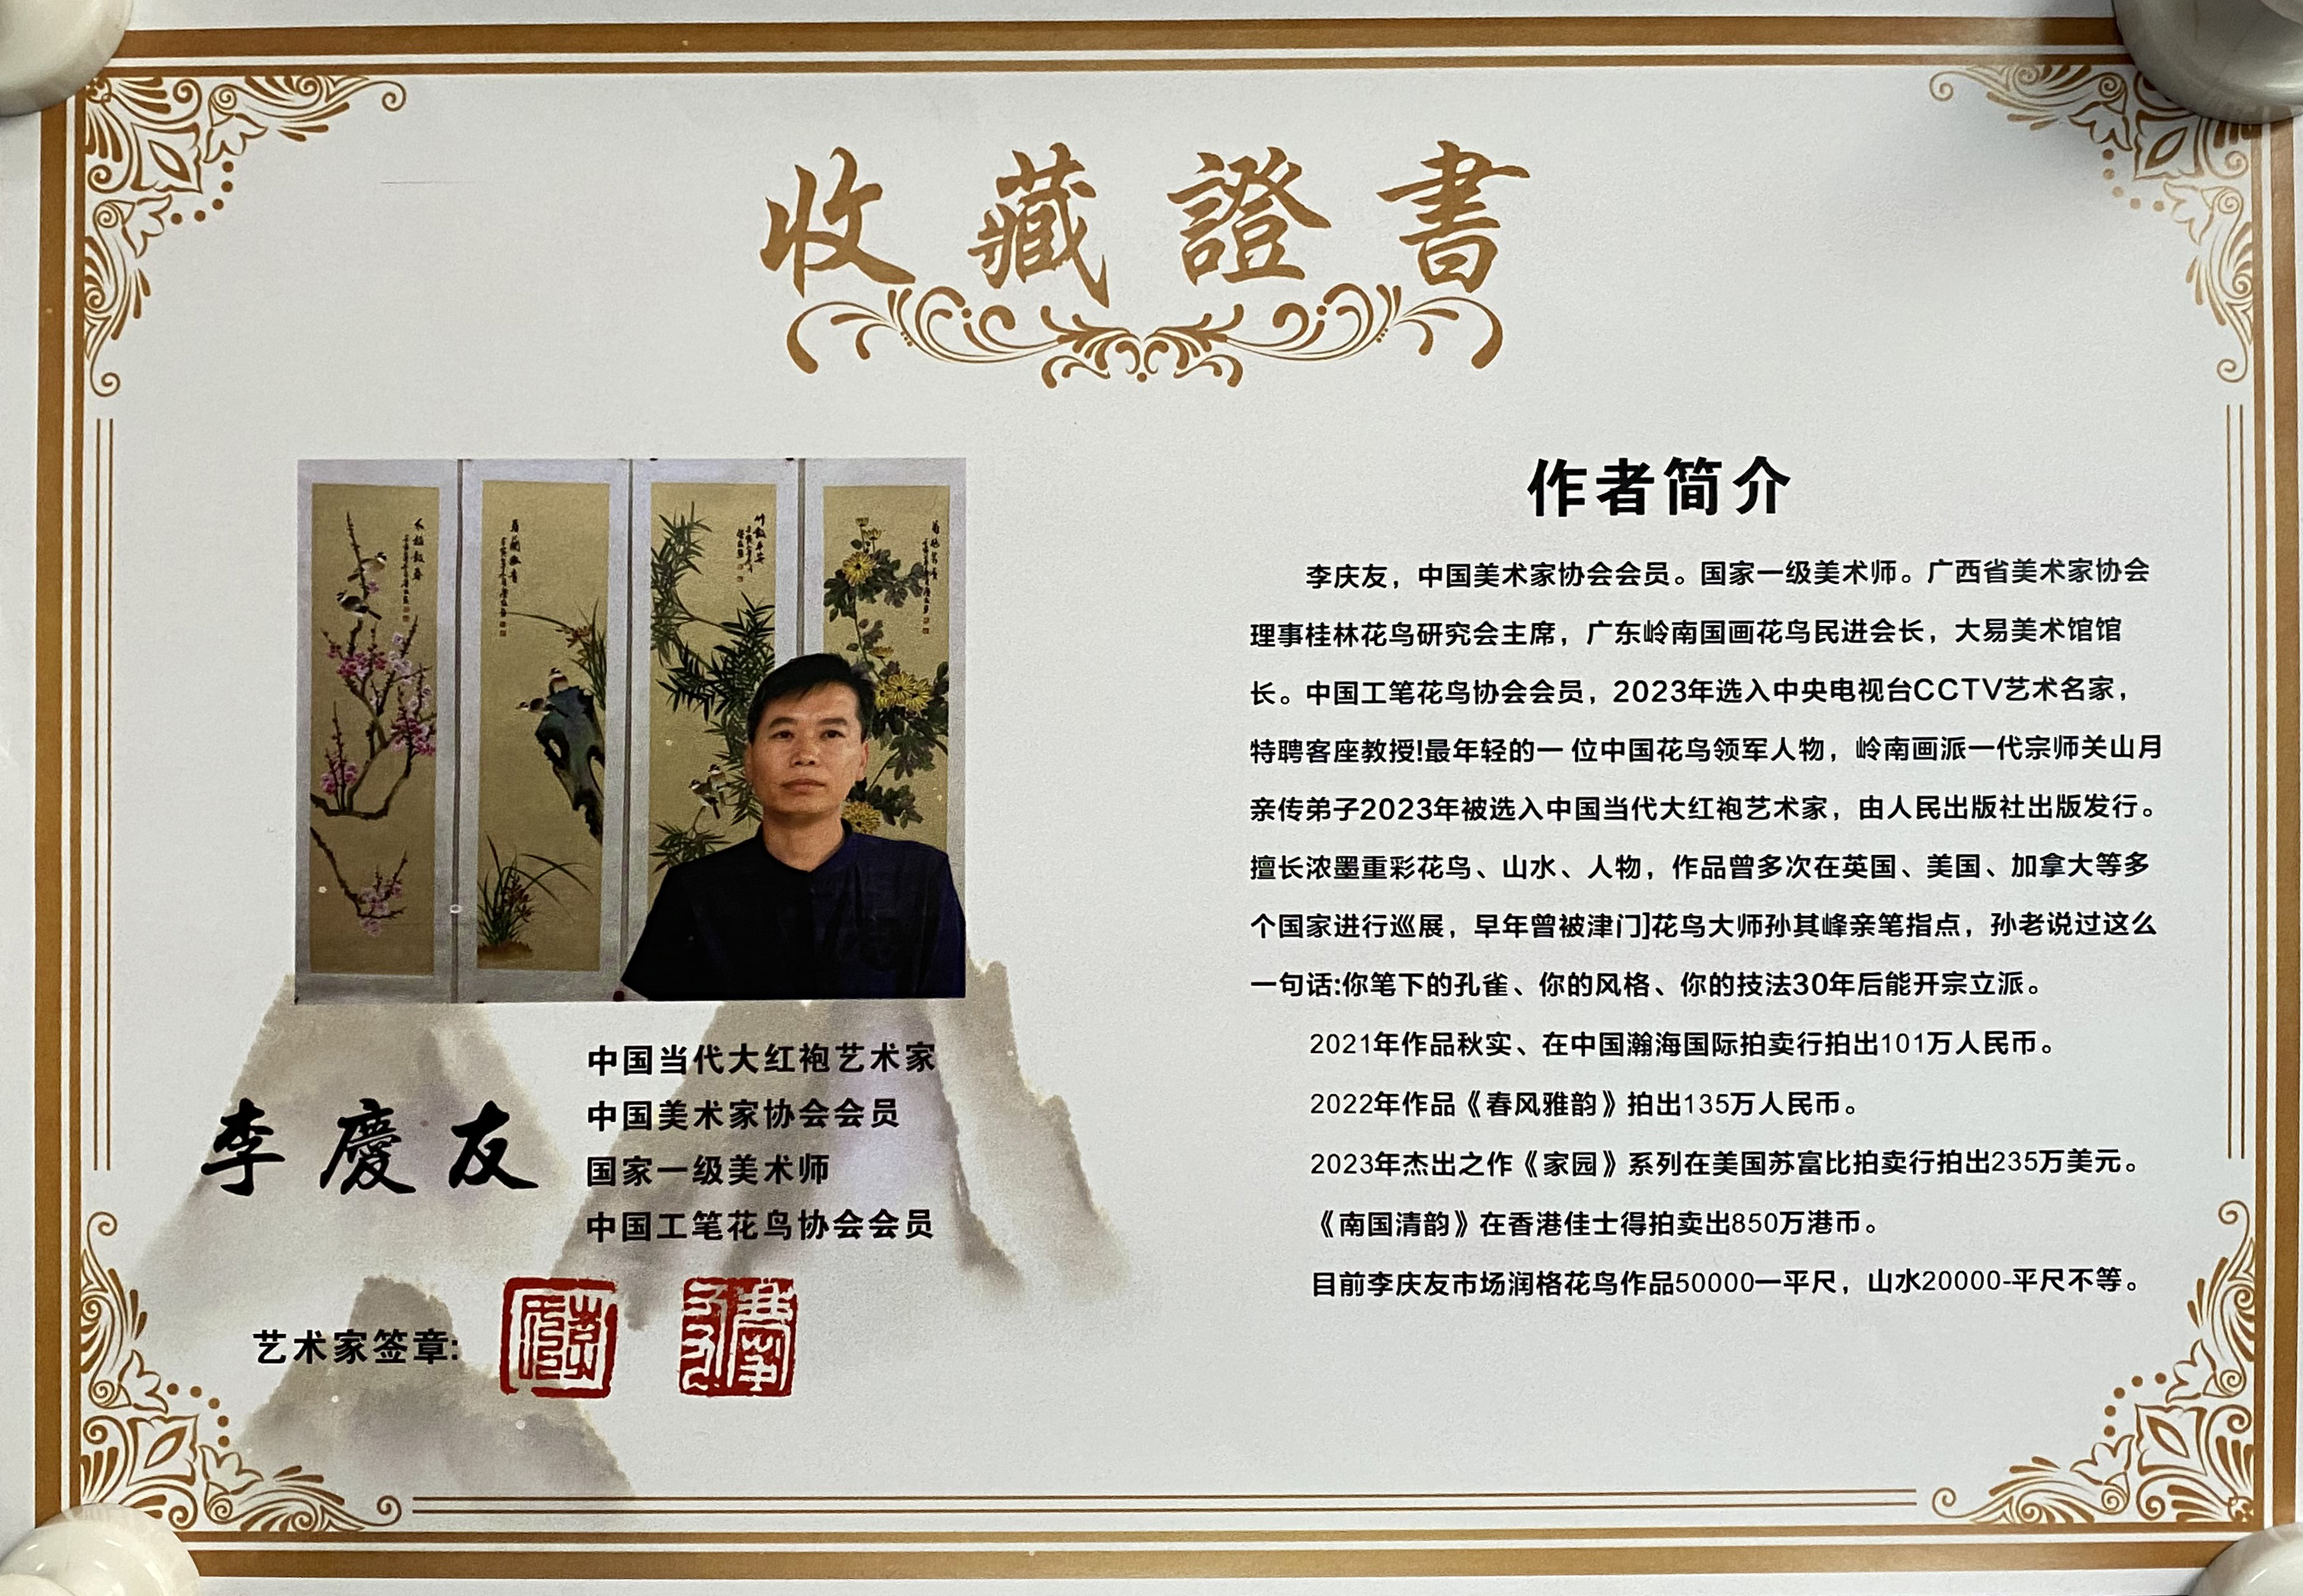 收藏證書
作者简介
李庆友，中国美术家协会会员。国家一级美术师。广西省美术家协会
理事桂林花鸟研究会主席，广东岭南国画花鸟民进会长，大易美术馆馆
长。中国工笔花鸟协会会员，2023年选入中央电视台CCTV艺术名家，
特聘客座教授!最年轻的一 位中国花鸟领军人物，岭南画派一代宗师关山月
亲传弟子2023年被选入中国当代大红袍艺术家，由人民出版社出版发行。
擅长浓墨重彩花鸟、山水、人物，作品曾多次在英国、美国、加拿大等多
个国家进行巡展，早年曾被津门]花鸟大师孙其峰亲笔指点，孙老说过这么
一句话:你笔下的孔雀、你的风格、你的技法30年后能开宗立派。
2021年作品秋实、在中国瀚海国际拍卖行拍出101万人民币。
2022年作品《春风雅韵》拍出135万人民币。
2023年杰出之作《家园》系列在美国苏富比拍卖行拍出235万美元。
《南国清韵》在香港佳士得拍卖出850万港币。
目前李庆友市场润格花鸟作品50000一平尺，山水20000-平尺不等。
李慶友
中国当代大红袍艺术家
中国美术家协会会员
国家一级美术师
中国工笔花鸟协会会员
艺术家签章: